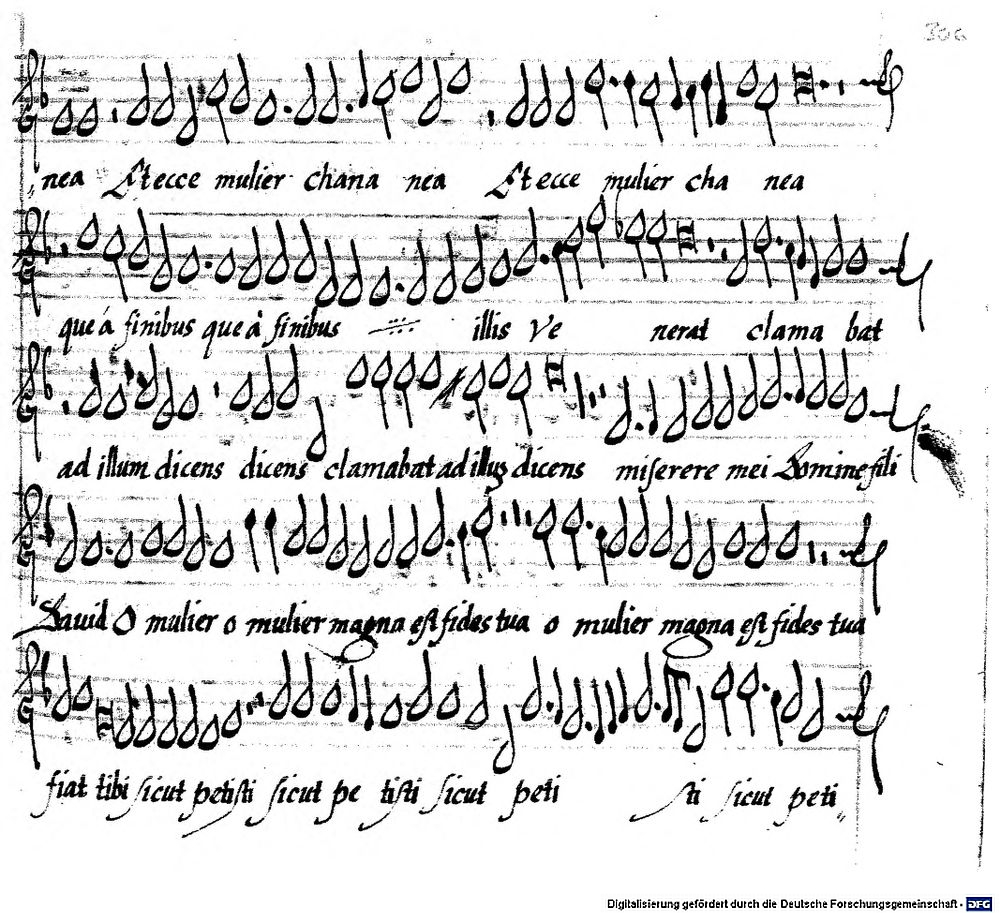 306
nea Et ecce mulier chana nea Et ecce mulier cha nea
que á finibus que à finibus illis Ve nerat clama bat
ad illum dicens dicens clamabat ad illuʒ dicens miserere mei Domine fili
Dauid O mulier o mulier magna est fides tua o mulier magna est fides tua
fiat tibi sicut petisti sicut pe tisti sicut peti sti sicut peti
Digitalisierung gefördert durch die Deutsche Forschungsgemeinschaft - DFG